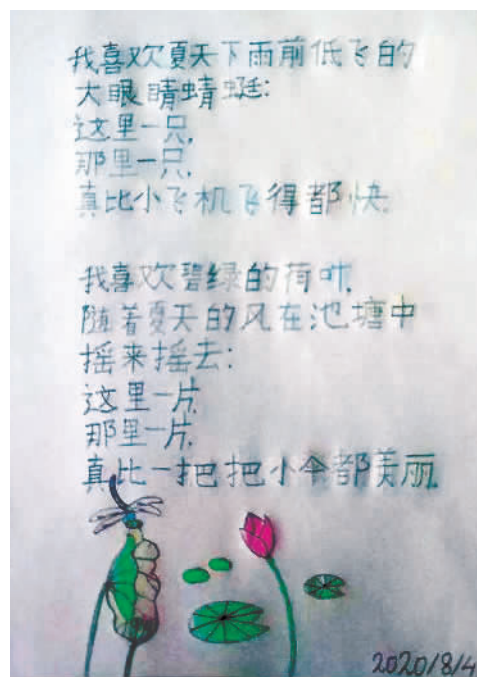 我喜欢夏天下雨前低飞的
大眼睛蜻蜓:
这里一只,
那里一只,
真比小飞机飞得都快.
我喜欢碧绿的荷叶,
随着夏天的风在池塘中
摇来摇去:
这里一片,
那里一片,
真比一把把小伞都美丽.
2020/8/4